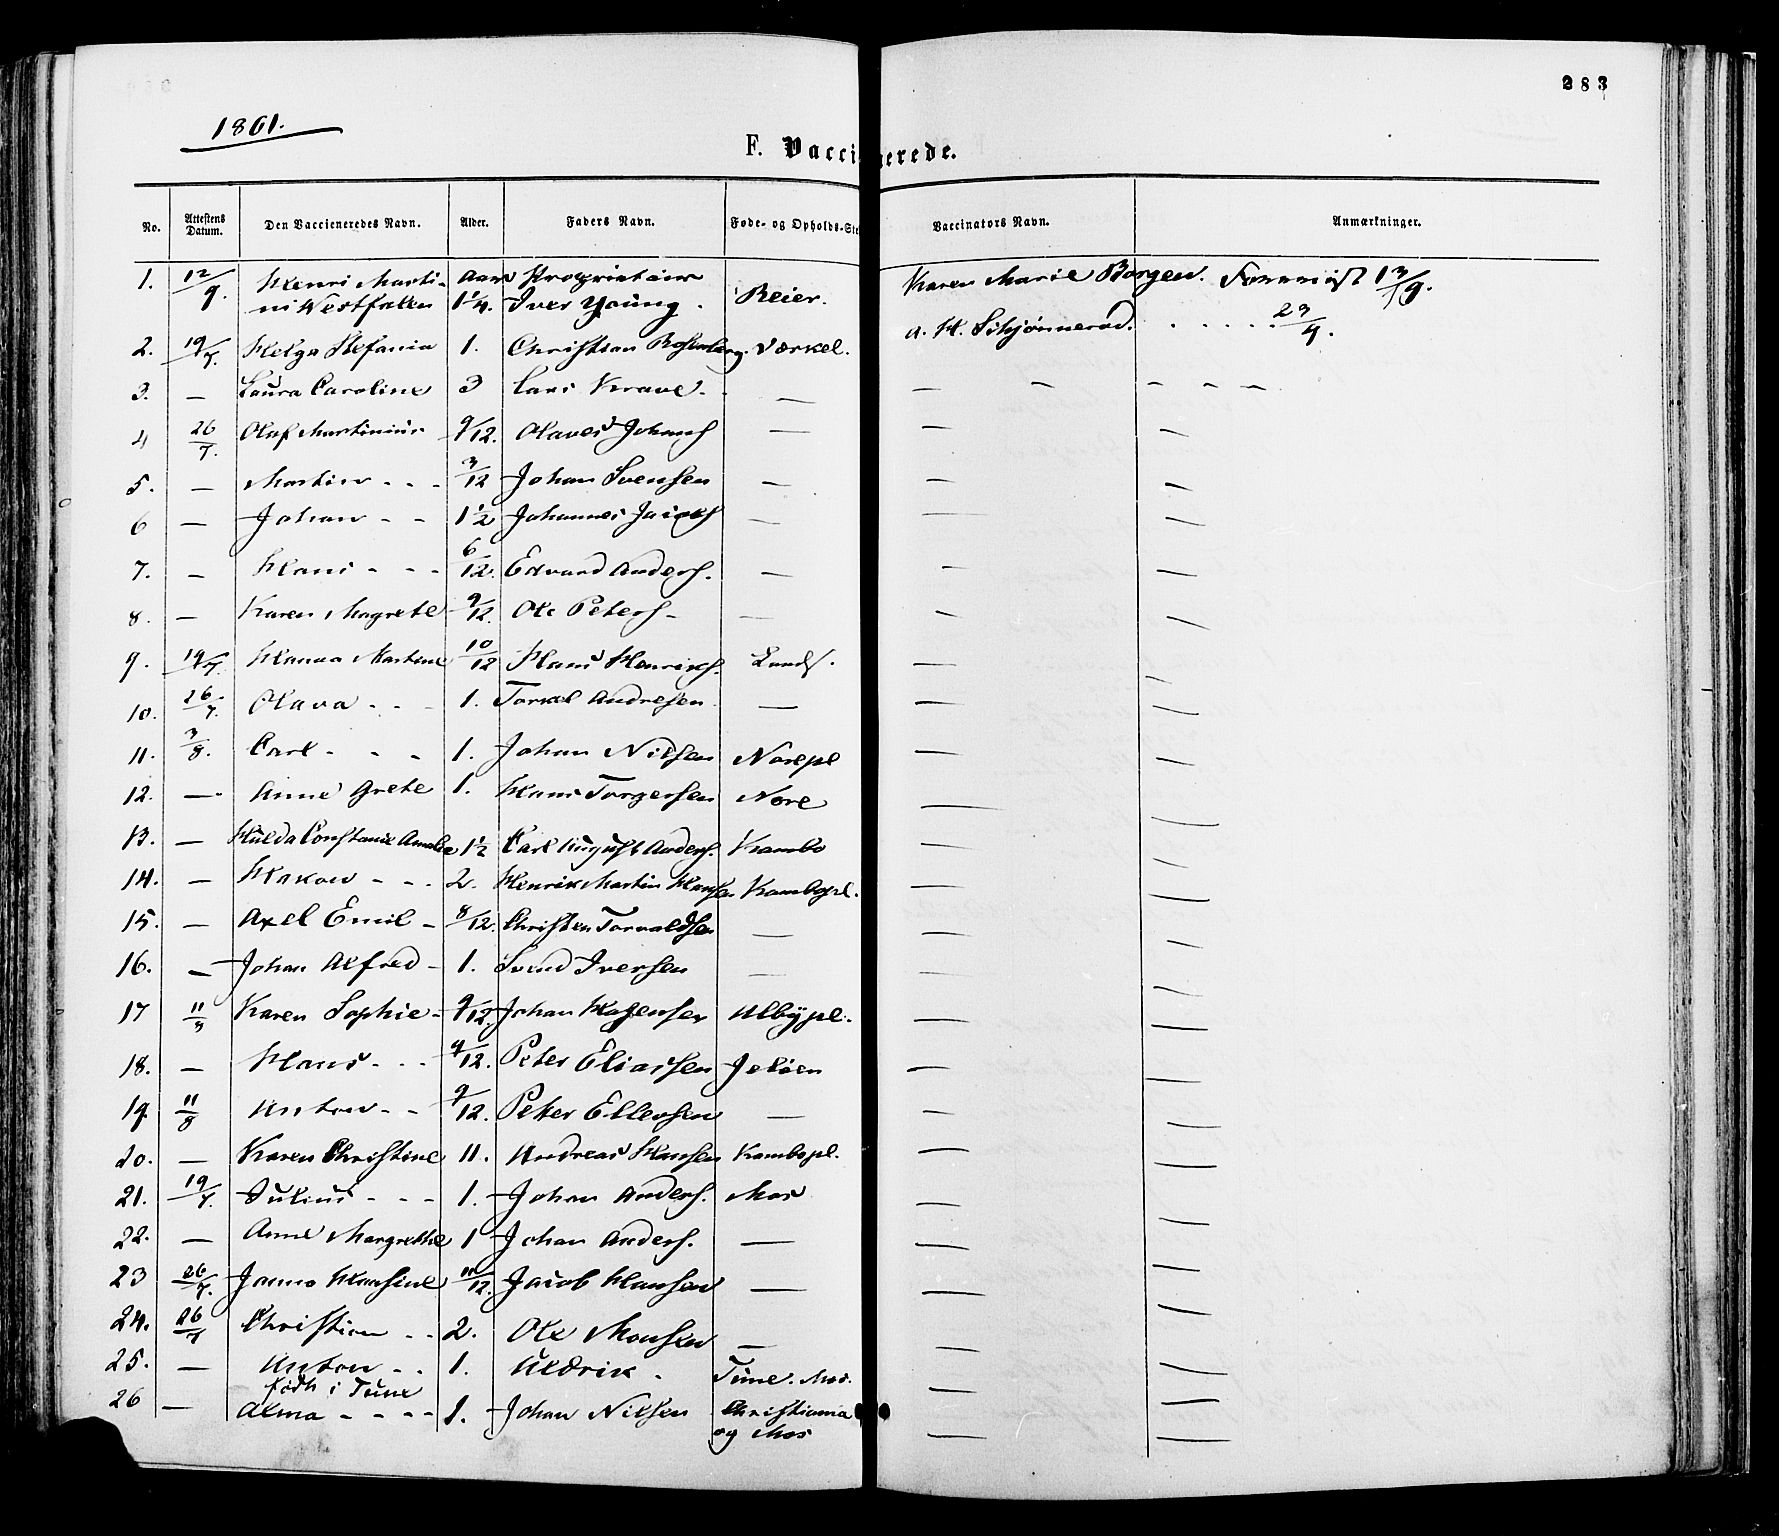 283
1861.
F. Vaccinerede.
No. Attestens Datum. Den Vaccieneredes Navn. Alder. Faders Navn. Føde- og Opholds-Ste Vaccinators Navn. Anmærkninger.
1. 12/9. Henri Marti- Aar Proprietair Karen Marie Borgen. Foreviist 13/9.
ni Westfalen 1 1/4. Iver Young. Reier.
2. 19/7. Helga Stefania 1. Christian Rosenberg. Værkel. A. H. Schjønnerød. . . . . . 23/9.
3. — Laura Caroline 3 Lars Krave. — — — — — —
4 26/7. Oluf Martinius 9/12. Olaves Johans — — —
5. — Martin - - - 3/12 Johan Svensen — — —
6 — Johan - - 1 1/2 Johannes Jacobs — — —
7. — Hans - - - 6/12. Edvard Anders. — — —
8. — Karen Magrete 9/12. Ole Peters - — — —
9. 19/7. Hanna Martine 10/12 Hans Henriks. Lunds. — —
10. 26/7. Olava - - - 1. Torkel Andresen — — —
11. 3/8. Carl - - - 1. Johan Nilsen Norepl — —
12. — Anne Grete 1. Hans Torgersen Nore — —
13. — Hulda Constanse Amalia 1 1/2 Carl August Anders. Kambo — —
14. — Hakon - - - 2. Henrik Martin Hansen Kambopl. — —
15. — Axel Emil - 8/12. Christen Torvaldsen — — —
16. — Johan Alfred - 1. Svend Iversen — — —
17 11/3 Karen Sophie - 9/12. Johan Albypl. — —
18. — Hans - - - 9/12. Peter Eliassen Jeløen — —
19 11/8 Anton - - 9/12. Peter Ellevsen — — —
20. — Karen Christine 11. Andreas Hansen Kambopl. — —
21. 19/7. Julius - - - 1. Johan Anders. Mos — —
22. — Anne Margrethe 1 Johan Anders. — — —
23 26/7. Janna Hansine 11/12. Jacob Hansen — — —
24. 26/7 Christian - - 2. Ole Monsen — — —
25. — Anton - - 1. Uldrik. Tune. Mos. — —
født i Tune
26 — Alma - - - - 1. Johan Nilsen Christiania — —
og Mos